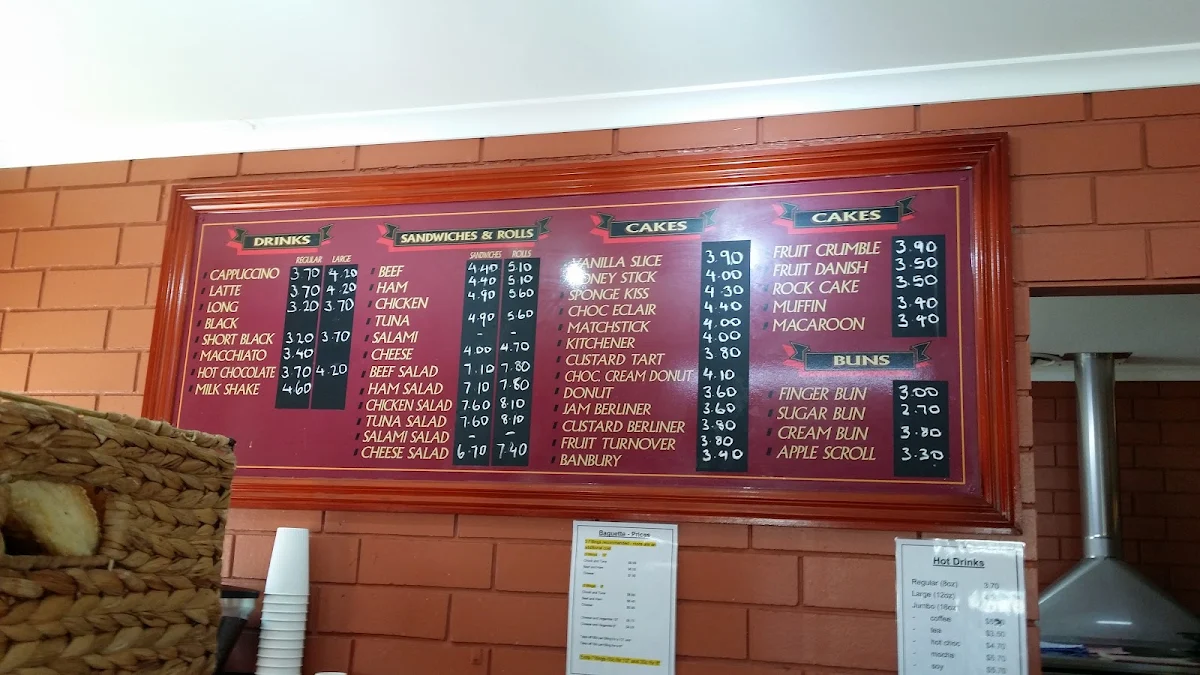 DRINKS
REGULAR LARGE
CAPPUCCINO 3.70 4.20
LATTE 3.70 4.20
LONG 3.20 3.70
BLACK
SHORT BLACK 3.20 3.70
MACCHIATO 3.40
HOT CHOCOLATE 3.70 4.20
MILK SHAKE 4.60
SANDWICHES & ROLLS
SANDWICHES ROLLS
BEEF 4.40 5.10
HAM 4.40 5.10
CHICKEN 4.90 5.60
TUNA 4.90 5.60
SALAMI - -
CHEESE 4.00 4.70
BEEF SALAD 7.10 7.80
HAM SALAD 7.10 7.80
CHICKEN SALAD 7.60 8.10
TUNA SALAD 7.60 8.10
SALAMI SALAD - -
CHEESE SALAD 6.70 7.40
CAKES
VANILLA SLICE 3.90
HONEY STICK 4.00
SPONGE KISS 4.30
CHOC ECLAIR 4.40
MATCHSTICK 4.00
KITCHENER 4.00
CUSTARD TART 3.80
CHOC. CREAM DONUT 4.10
DONUT 3.60
JAM BERLINER 3.60
CUSTARD BERLINER 3.80
FRUIT TURNOVER 3.80
BANBURY 3.40
CAKES
FRUIT CRUMBLE 3.90
FRUIT DANISH 3.50
ROCK CAKE 3.50
MUFFIN 3.40
MACAROON 3.40
BUNS
FINGER BUN 3.00
SUGAR BUN 2.70
CREAM BUN 3.80
APPLE SCROLL 3.30
Baguette - Prices
Hot Drinks
Regular (8oz) 3.70
Large (12oz)
Jumbo (16oz)
- coffee
- tea $3.60
- hot choc $4.70
- mocha
- soy $5.70